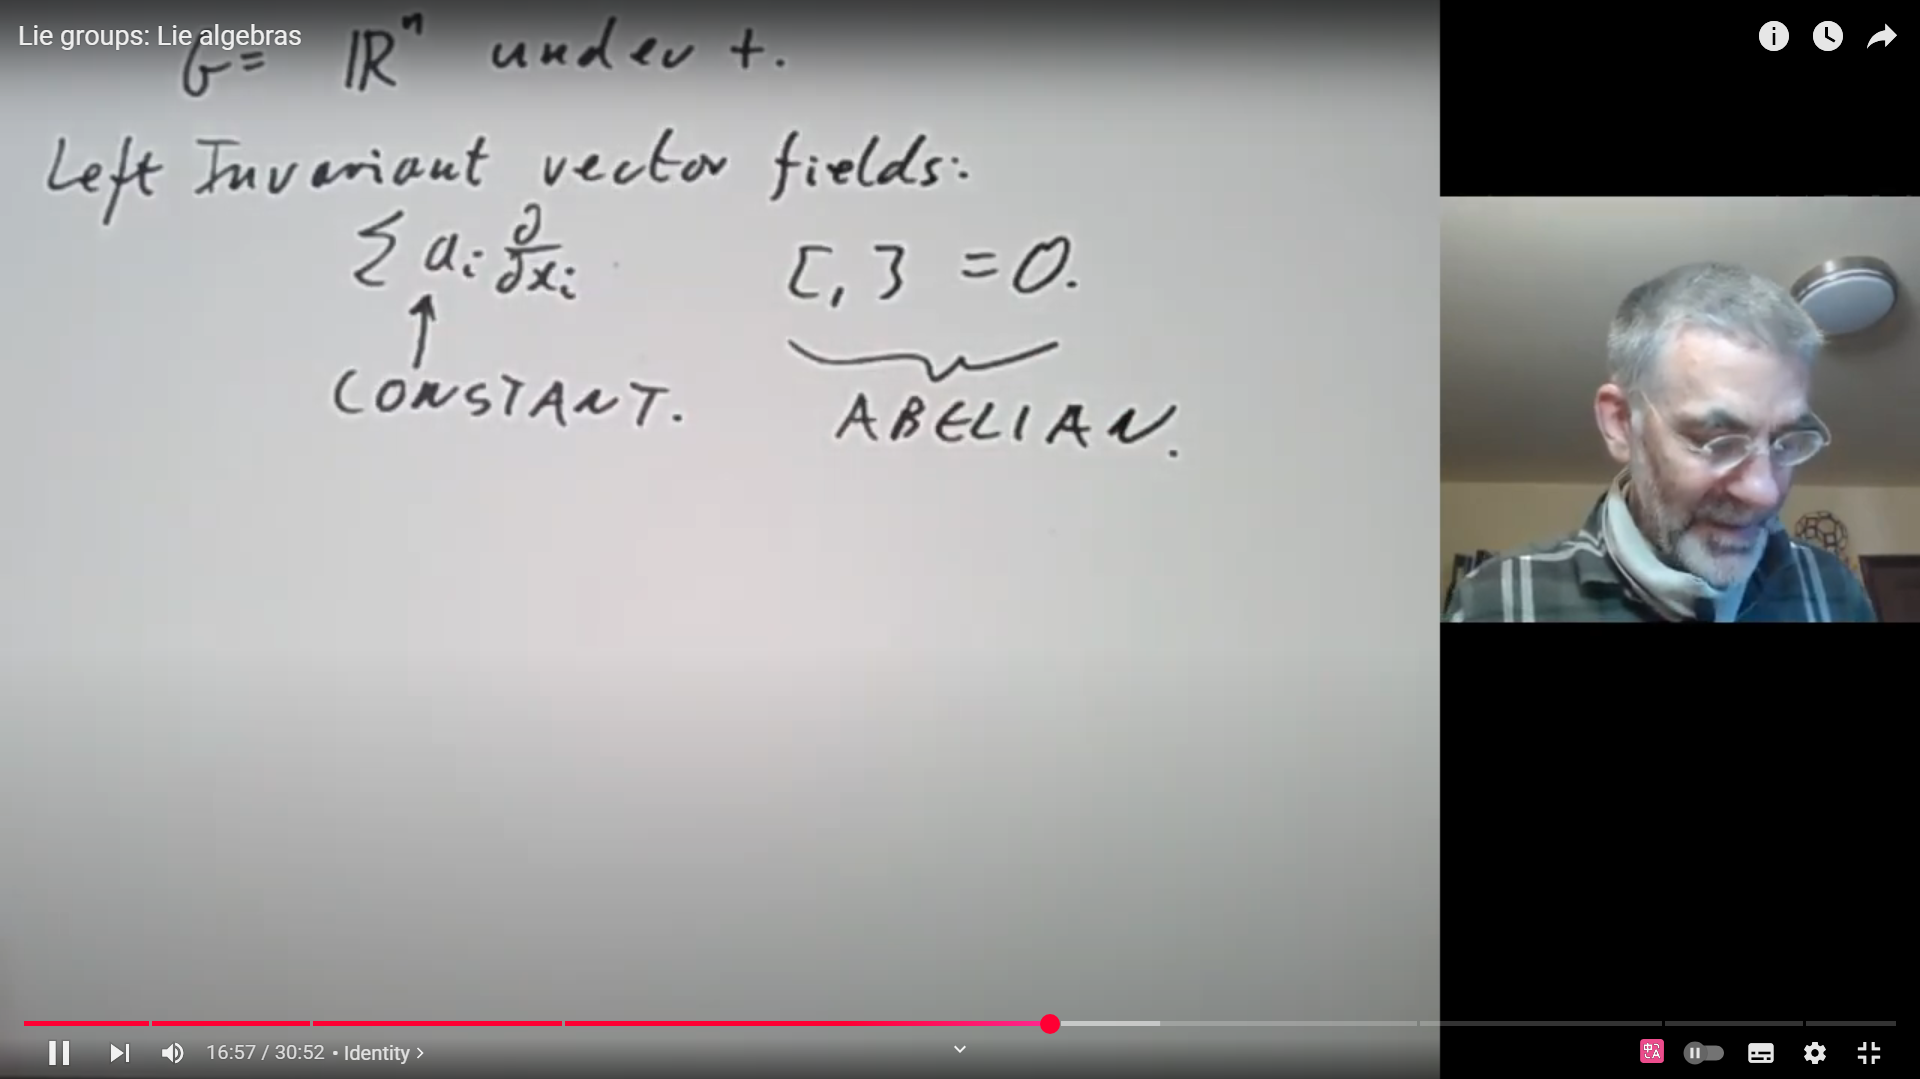 Lie groups: Lie algebras
G = ℝⁿ under +.
Left Invariant vector fields:
∑ aᵢ ∂/∂xᵢ [,] = 0.
↑
CONSTANT. ABELIAN.
16:57 / 30:52 • Identity >